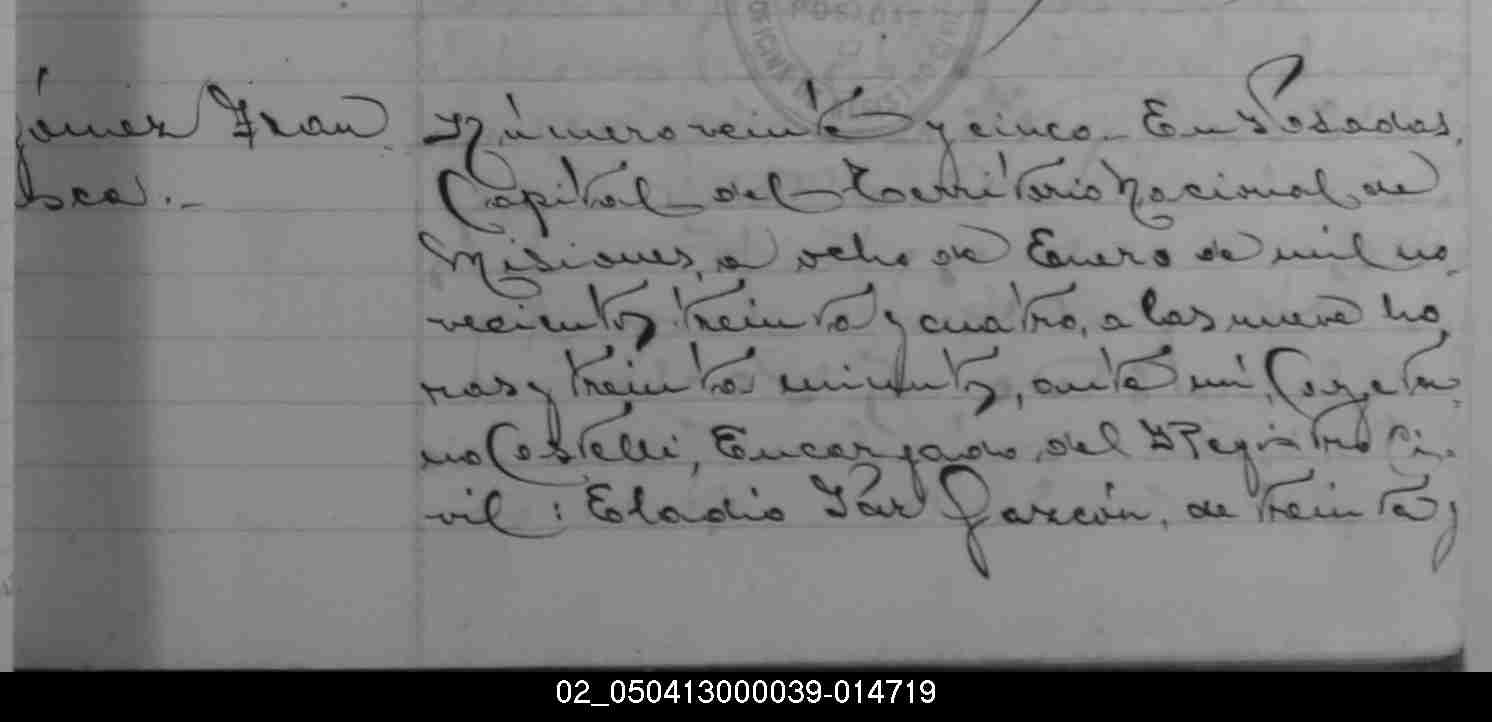 POSADAS
Gómez Fran
isca.-
Número veinte y cinco. En Posadas,
Capital del Territorio Nacional de
Misiones, a ocho de Enero de mil no-
vecientos treinta y cuatro, a las nueve ho-
ras y treinta minutos, ante mí, Cayeta-
no Castelli, Encargado del Registro Ci-
vil: Eladio Garzón, de treinta y
02_050413000039-014719